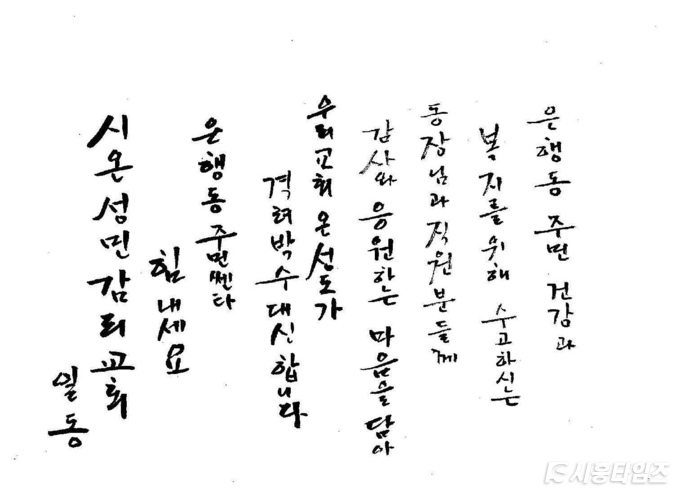 은행동 주민 건강과
복지를 위해 수고하시는
동장님과 직원분들께
감사와 응원하는 마음을 담아
우리교회 온성도가
격려박수대신합니다
은행동 주민쎈타
힘내세요
시온성민감리교회
일동
시흥타임즈